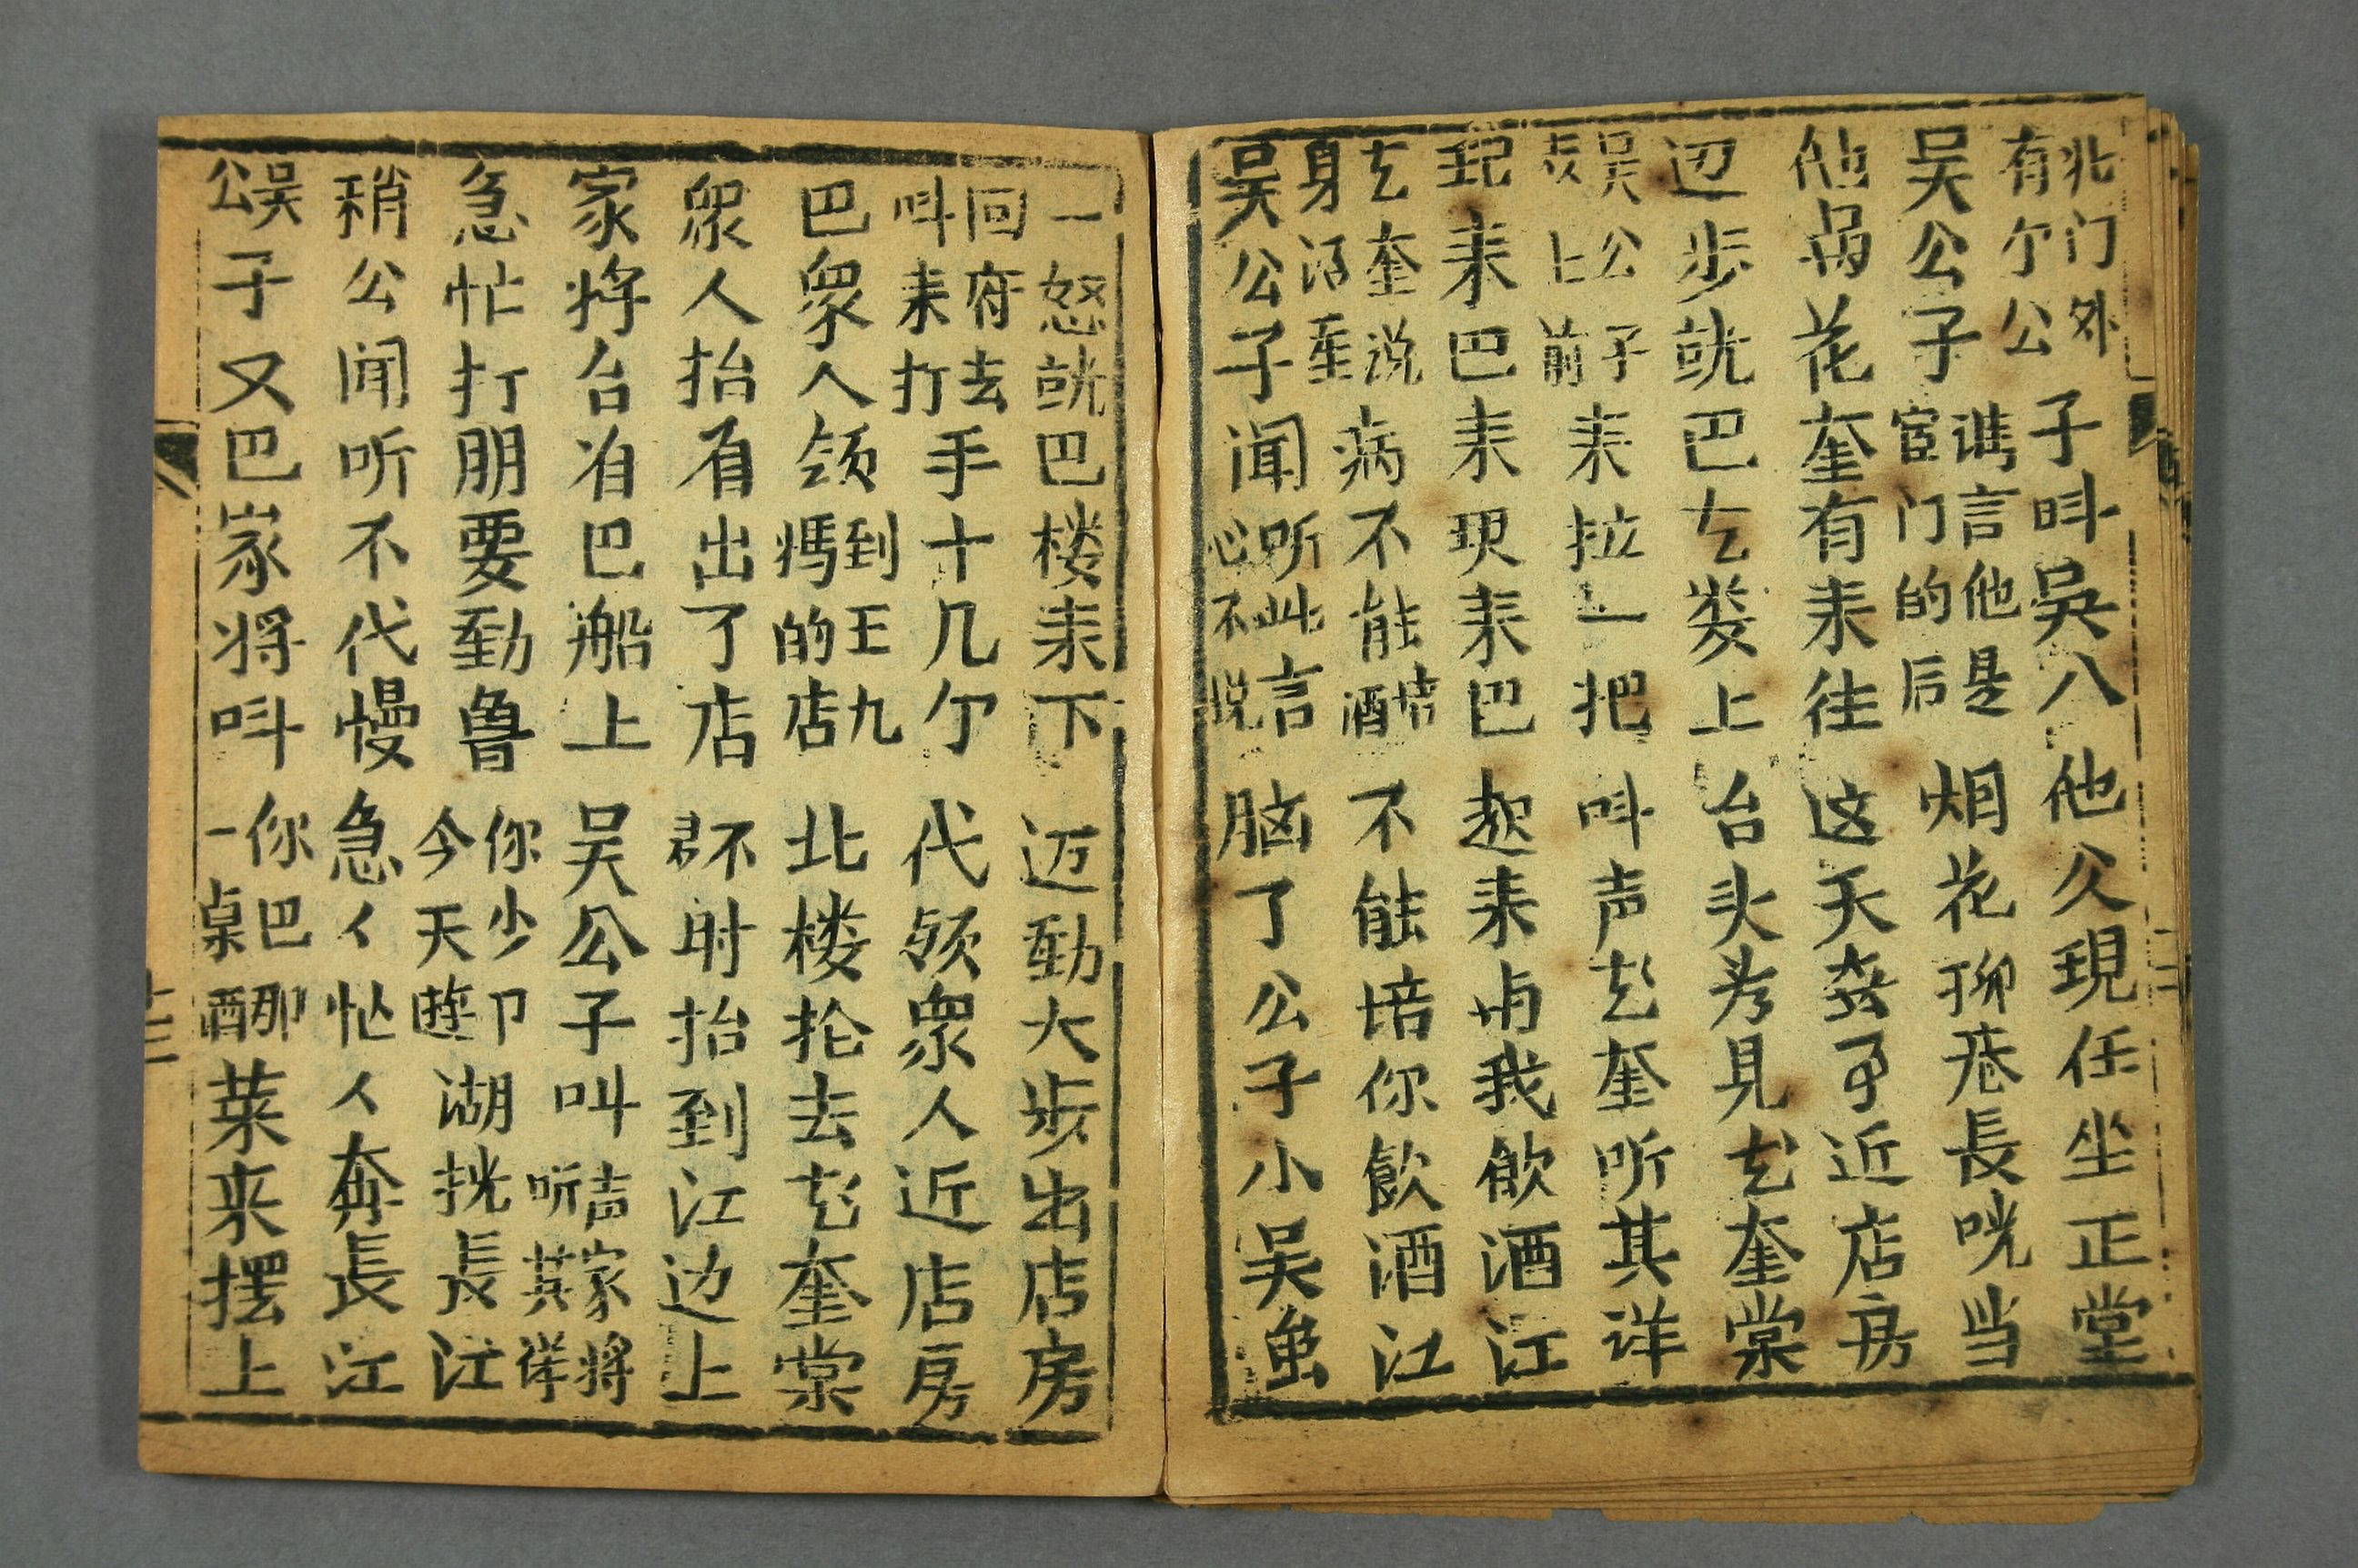 北门外有亇公子叫吴八 他父現任坐正堂
吴公子谯言他是宦门的后 烟花柳巷長咣当
他与花奎有来往 这天奔了近店房
迈步就巴娄上 台头考見花奎棠
吴公子上前来拉一把 叫声花奎听其详
来巴来来巴起来与我飲酒江
花奎说身沾重病不能培酒 不能培你飲酒江
吴公子闻听此言心不悦 脑了公子小吴
一怒就巴楼来下 迈動大步出店房
回府去叫来打手十几亇 代领衆人近店房
巴衆人领到王九媽的店 北楼抡去花奎棠
衆人抬有出了店 不时抬到江边上
家将台有巴船上 吴公子叫声家将听其详
急忙打朋要動鲁 你少卩今天逰湖挄長江
稍公闻听不代慢 急〻忙〻奔長江
吴公子又巴家将叫 你巴那一桌酒菜来摆上
十二